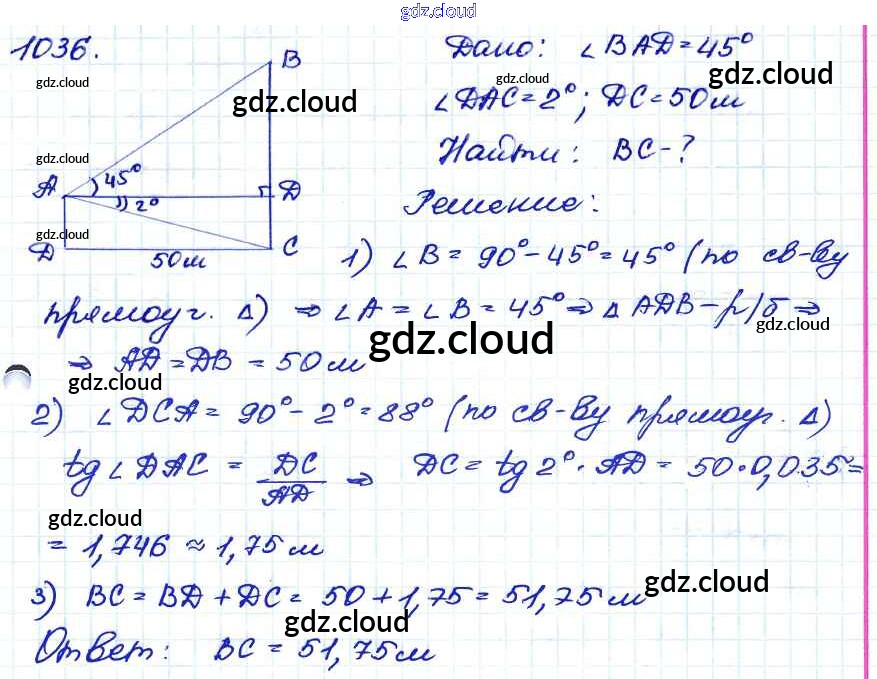 gdz.cloud
1036.
B
Дано: ∠BAD=45°
gdz.cloud
gdz.cloud
gdz.cloud
gdz.cloud
∠DAC=2°; DC=50м
gdz.cloud
Найти: BC-?
gdz.cloud
A 45° 2° D
Решение:
gdz.cloud
D 50м C
1) ∠B = 90°-45°=45° (по св-ву
прямоуг. Δ) ⇒ ∠A = ∠B = 45° ⇒ Δ ADB - р/б ⇒
gdz.cloud
gdz.cloud
⇒ AD = DB = 50м
gdz.cloud
2) ∠DCA = 90°-2°=88° (по св-ву прямоуг. Δ)
tg∠DAC = DC/AD ⇒ DC = tg2°·AD = 50·0,035≈
gdz.cloud
= 1,746 ≈ 1,75м
3) BC = BD + DC = 50 + 1,75 = 51,75м
gdz.cloud
gdz.cloud
Ответ: BC = 51,75м